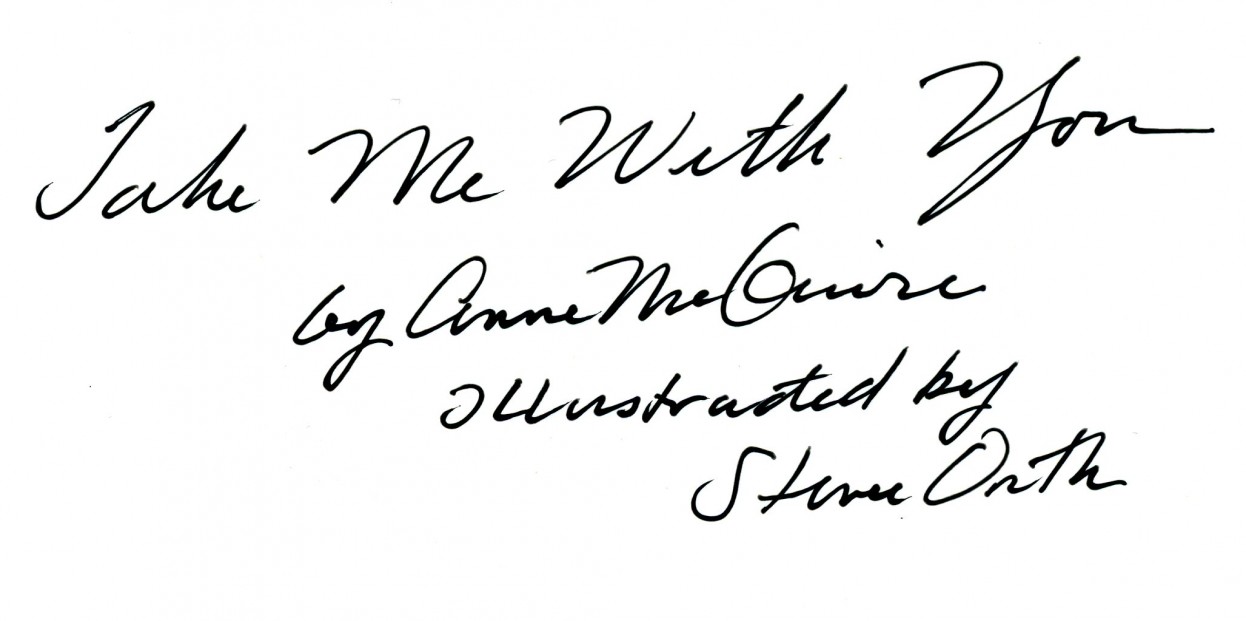 Take Me With You
by Anne McGuire
illustrated by
Steve Orth